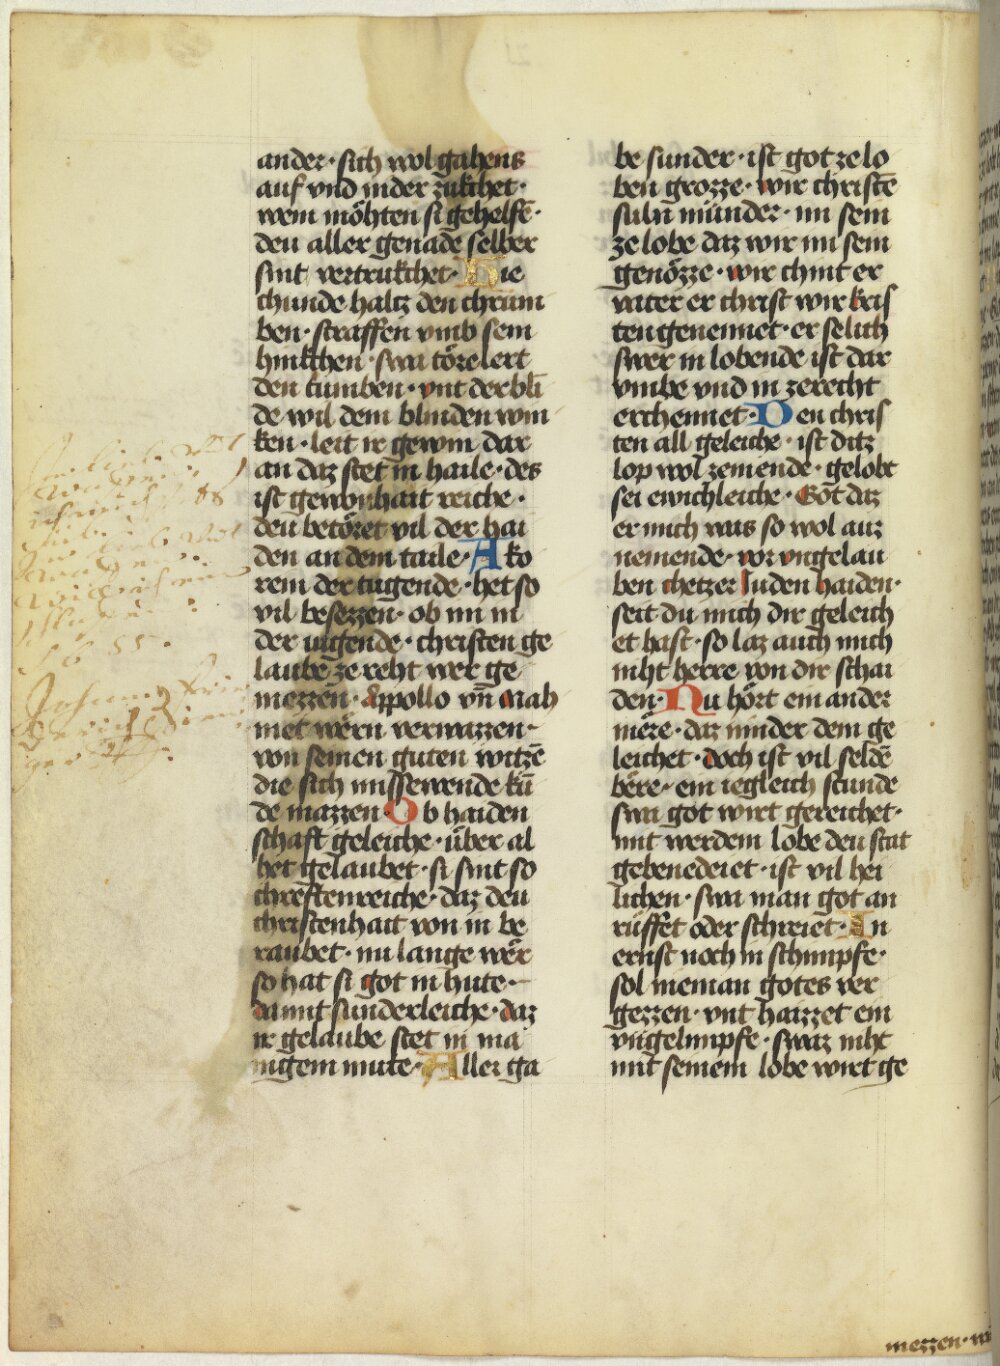 ander· sich wol gahens
auf vnd inder zukchet·
wem möhten si gehelfē·
den aller genade selber
sint vertrukchet· Hie
chunde haltz den chrum
ben· straffen vmb sein
hinkchen· swa töre lert
den tumben· vnt der bli
de wil dem blinden win
ken· leit ir gewin dar
an daz stet in haile· des
ist gewonhait reiche·
deu betöret vil der hai
den an dem taile· A ko
rem der tugende· het so
vil besezzen· ob im in
der iugende· christen ge
laube ze reht wer ge
mezzen· Appollo vn̄ Mah
met wern verwazzen·
von seinen guten witzē
die sich missewende kū
de mazzen· Ob haiden
schaft geleiche· über al
het gelaubet· si sint so
chreftenreiche· daz deu
christenhait von in be
raubet· nu lange wer
so hat si got in hute·
damit sunderleiche· daz
ir gelaube stet in ma
nigem mute· Aller ga
be sunder· ist got ze lo
ben grozze· wir christē
suln münder· im sein
ze lobe daz wir im sein
genözze· wir chint er
vater er christ wir kris
ten genennet· er selich
swer in lobende ist dar
vmbe vnd in ze recht
erchennet· Den chris
ten all geleiche· ist ditz
lop wol zemende· gelobt
sei ewichleiche· Got daz
er mich was so wol auz
nemende· vor vngelau
ben chetzer Juden haiden·
seit du mich dir geleich
et hast· so laz auch mich
niht herre von dir schai
den· Nu hört ein ander
mere· daz minder dem ge
leichet· doch ist vil seldē
bere· ein iegleich stunde
swa got wirt gereichet·
mit werdem lobe deu stat
gebenedeiet· ist vil hei
lichen· swa man got an
rüffet oder schreiet· In
ernst noch in schimpfe·
sol nieman gotes ver
gezzen· vnt haizzet ein
vngelimpfe· swaz niht
mit seinem lobe wirt ge
mezzen·